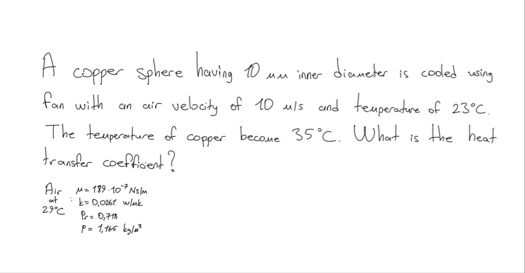 A copper sphere having 10 mm inner diameter is cooled using
fan with an air velocity of 10 m/s and temperature of 23°C.
The temperature of copper become 35°C. What is the heat
transfer coefficient?
Air μ = 189·10⁻⁷ Ns/m
at : k = 0,0261 W/mK
29°C Pr = 0,718
ρ = 1,165 kg/m³